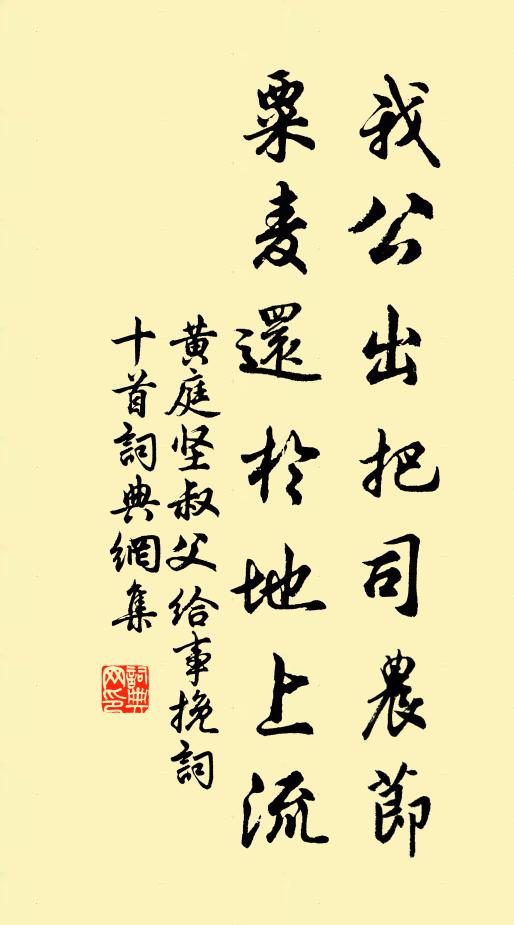 我公出把司農節
粟麦還於地上流
黃庭坚叔父给事挽詞
十首詞典網集
詞典网印